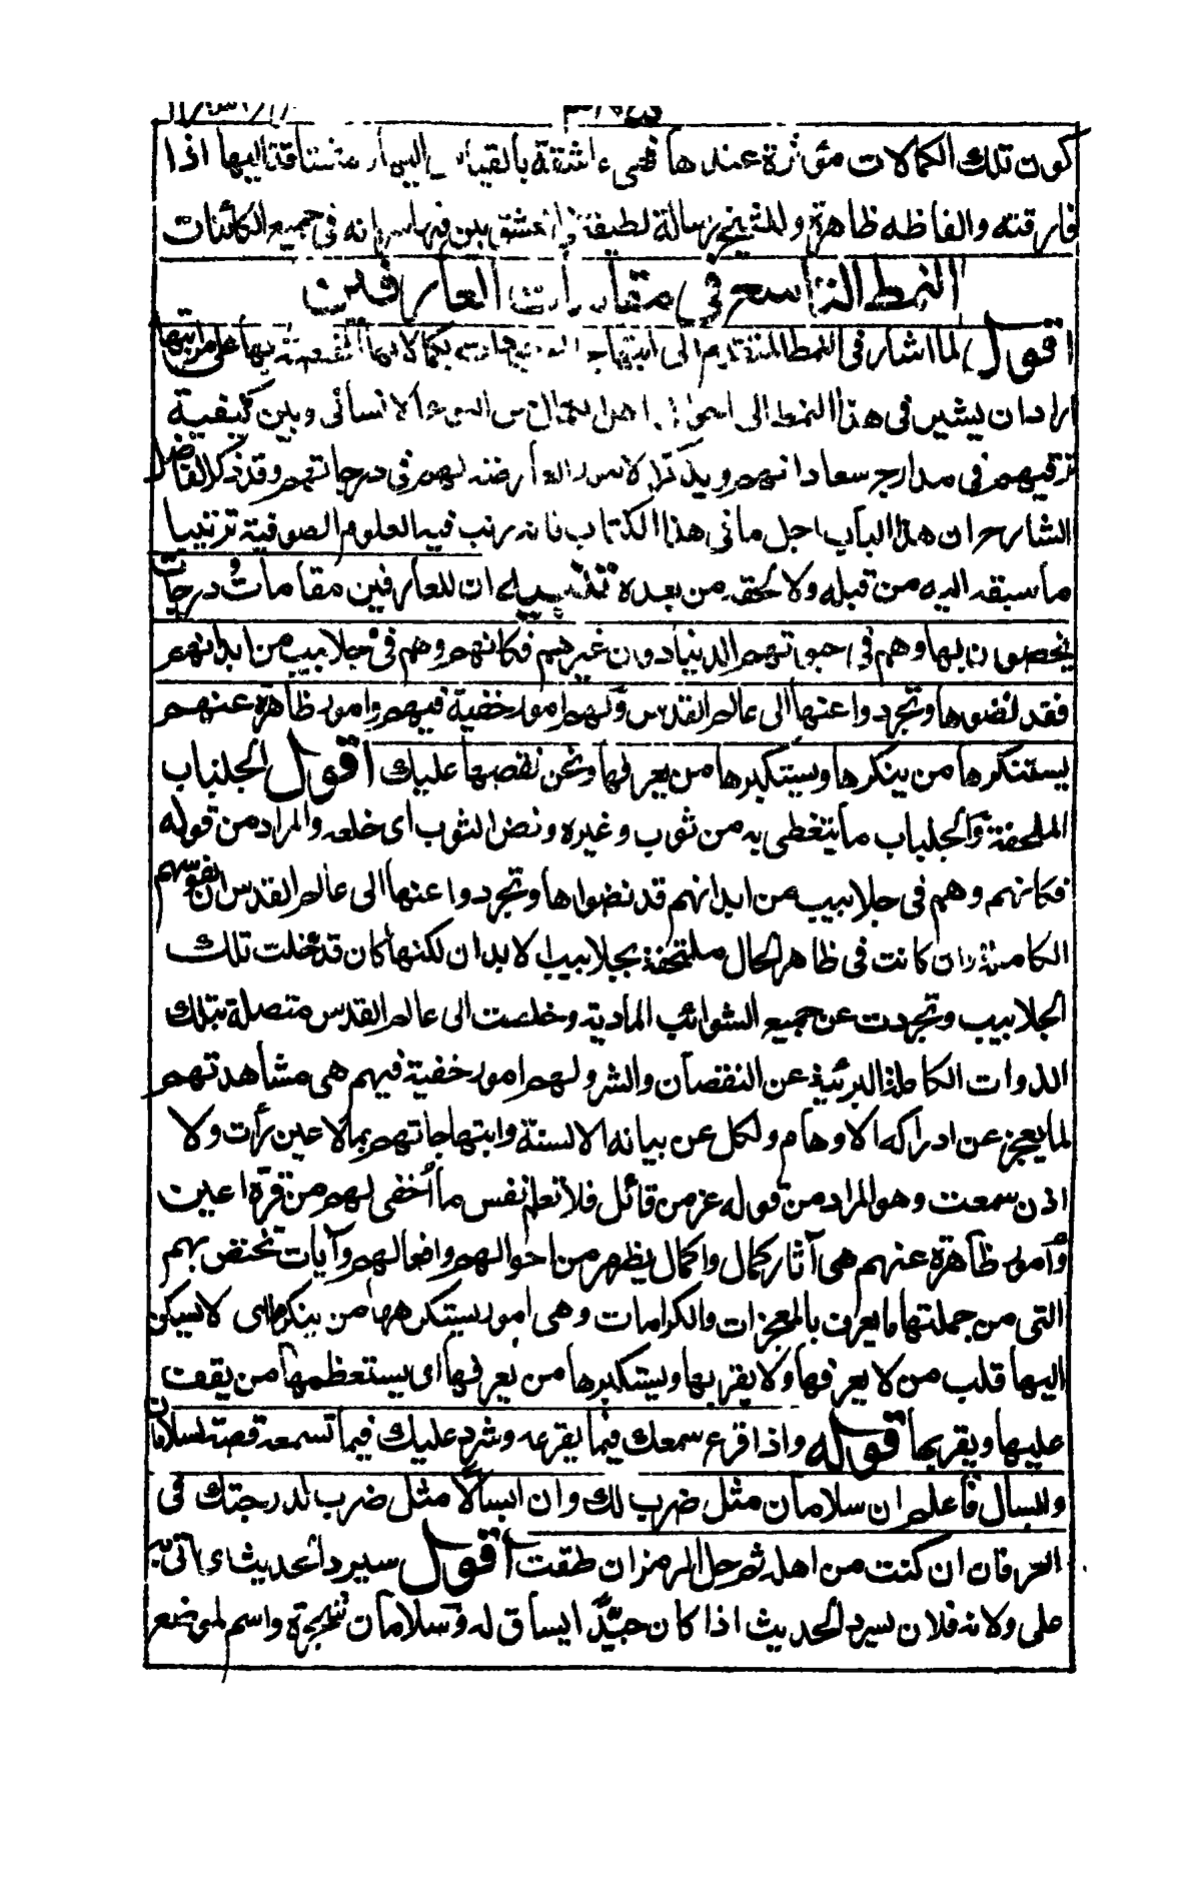 كون تلك الكمالات مؤثرة عندها فهي عاشقة بالقياس اليها مشتاقة اليها اذا
فارقته والفاظه ظاهرة وللشيخ رسالة لطيفة في العشق بين فيها سريانه في جميع الكائنات
النمط التاسع في مقامات العارفين
اقول لما اشار في النمط المتقدم الى ابتهاج بكمالاتها بها على مراتبها
اراد ان يشير في هذا النمط الى احوال اهل الكمال من النوع الانسانى وبين كيفية
ترقيهم في مدارج سعاداتهم ويذكر الامور العارضة لهم في درجاتهم وقد ذكر الفاضل
الشارح ان هذا الباب اجل ما في هذا الكتاب فانه رتب فيه العلوم الصوفية ترتيبا
ما سبقه اليه من قبله ولا لحقه من بعده تنبيه ان للعارفين مقامات ودرجات
يخصون بها وهم في حيوتهم الدنيا دون غيرهم فكانهم وهم في جلابيب من ابدانهم
فقد نضوها وتجردوا عنها الى عالم القدس ولهم امور خفية فيهم وامور ظاهرة عنهم
يستنكرها من ينكرها ويستكبرها من يعرفها ونحن نقصها عليك اقول الجلباب
الملحفة والجلباب ما يتغطى به من ثوب وغيره ونض الثوب اى خلعه والمراد من قوله
فكانهم وهم في جلابيب من ابدانهم قد نضوها وتجردوا عنها الى عالم القدس ان نفوسهم
الكاملة وان كانت في ظاهر الحال ملتحفة بجلابيب الابدان لكنها كان قد خلت تلك
الجلابيب وتجردت عن جميع الشوائب المادية وخلصت الى عالم القدس متصلة بتلك
الذوات الكاملة البرئية عن النقصان والشر ولهم امور خفية فيهم هى مشاهدتهم
لما يعجز عن ادراكه الاوهام ولكل عن بيانه الالسنة وابتهاجاتهم بما لا عين رأت ولا
اذن سمعت وهو المراد من قوله عز من قائل فلا تعلم نفس ما أخفى لهم من قرة اعين
وامور ظاهرة عنهم هى آثار كمال واكمال يظهر من احوالهم وافعالهم وآيات تختص بهم
التي من جملتها ما يعرف بالمعجزات والكرامات وهى امور يستنكرها من ينكرها اى لا يسكن
اليها قلب من لا يعرفها ولا يقر بها ويستكبرها من يعرفها اى يستعظمها من يقف
عليها ويقر بها قوله واذا قرع سمعك فيما يقرعه وسرد عليك فيما تسمعه قصة لسلامان
وابسال فاعلم ان سلامان مثل ضرب لك وان ابسالا مثل ضرب لدرجتك في
العرفان ان كنت من اهله ثم حل الرمز ان طقت اقول سرد الحديث اى اتى به
على ولائه فلان يسرد الحديث اذا كان جيد السياق له وسلامان شجرة واسم لموضع